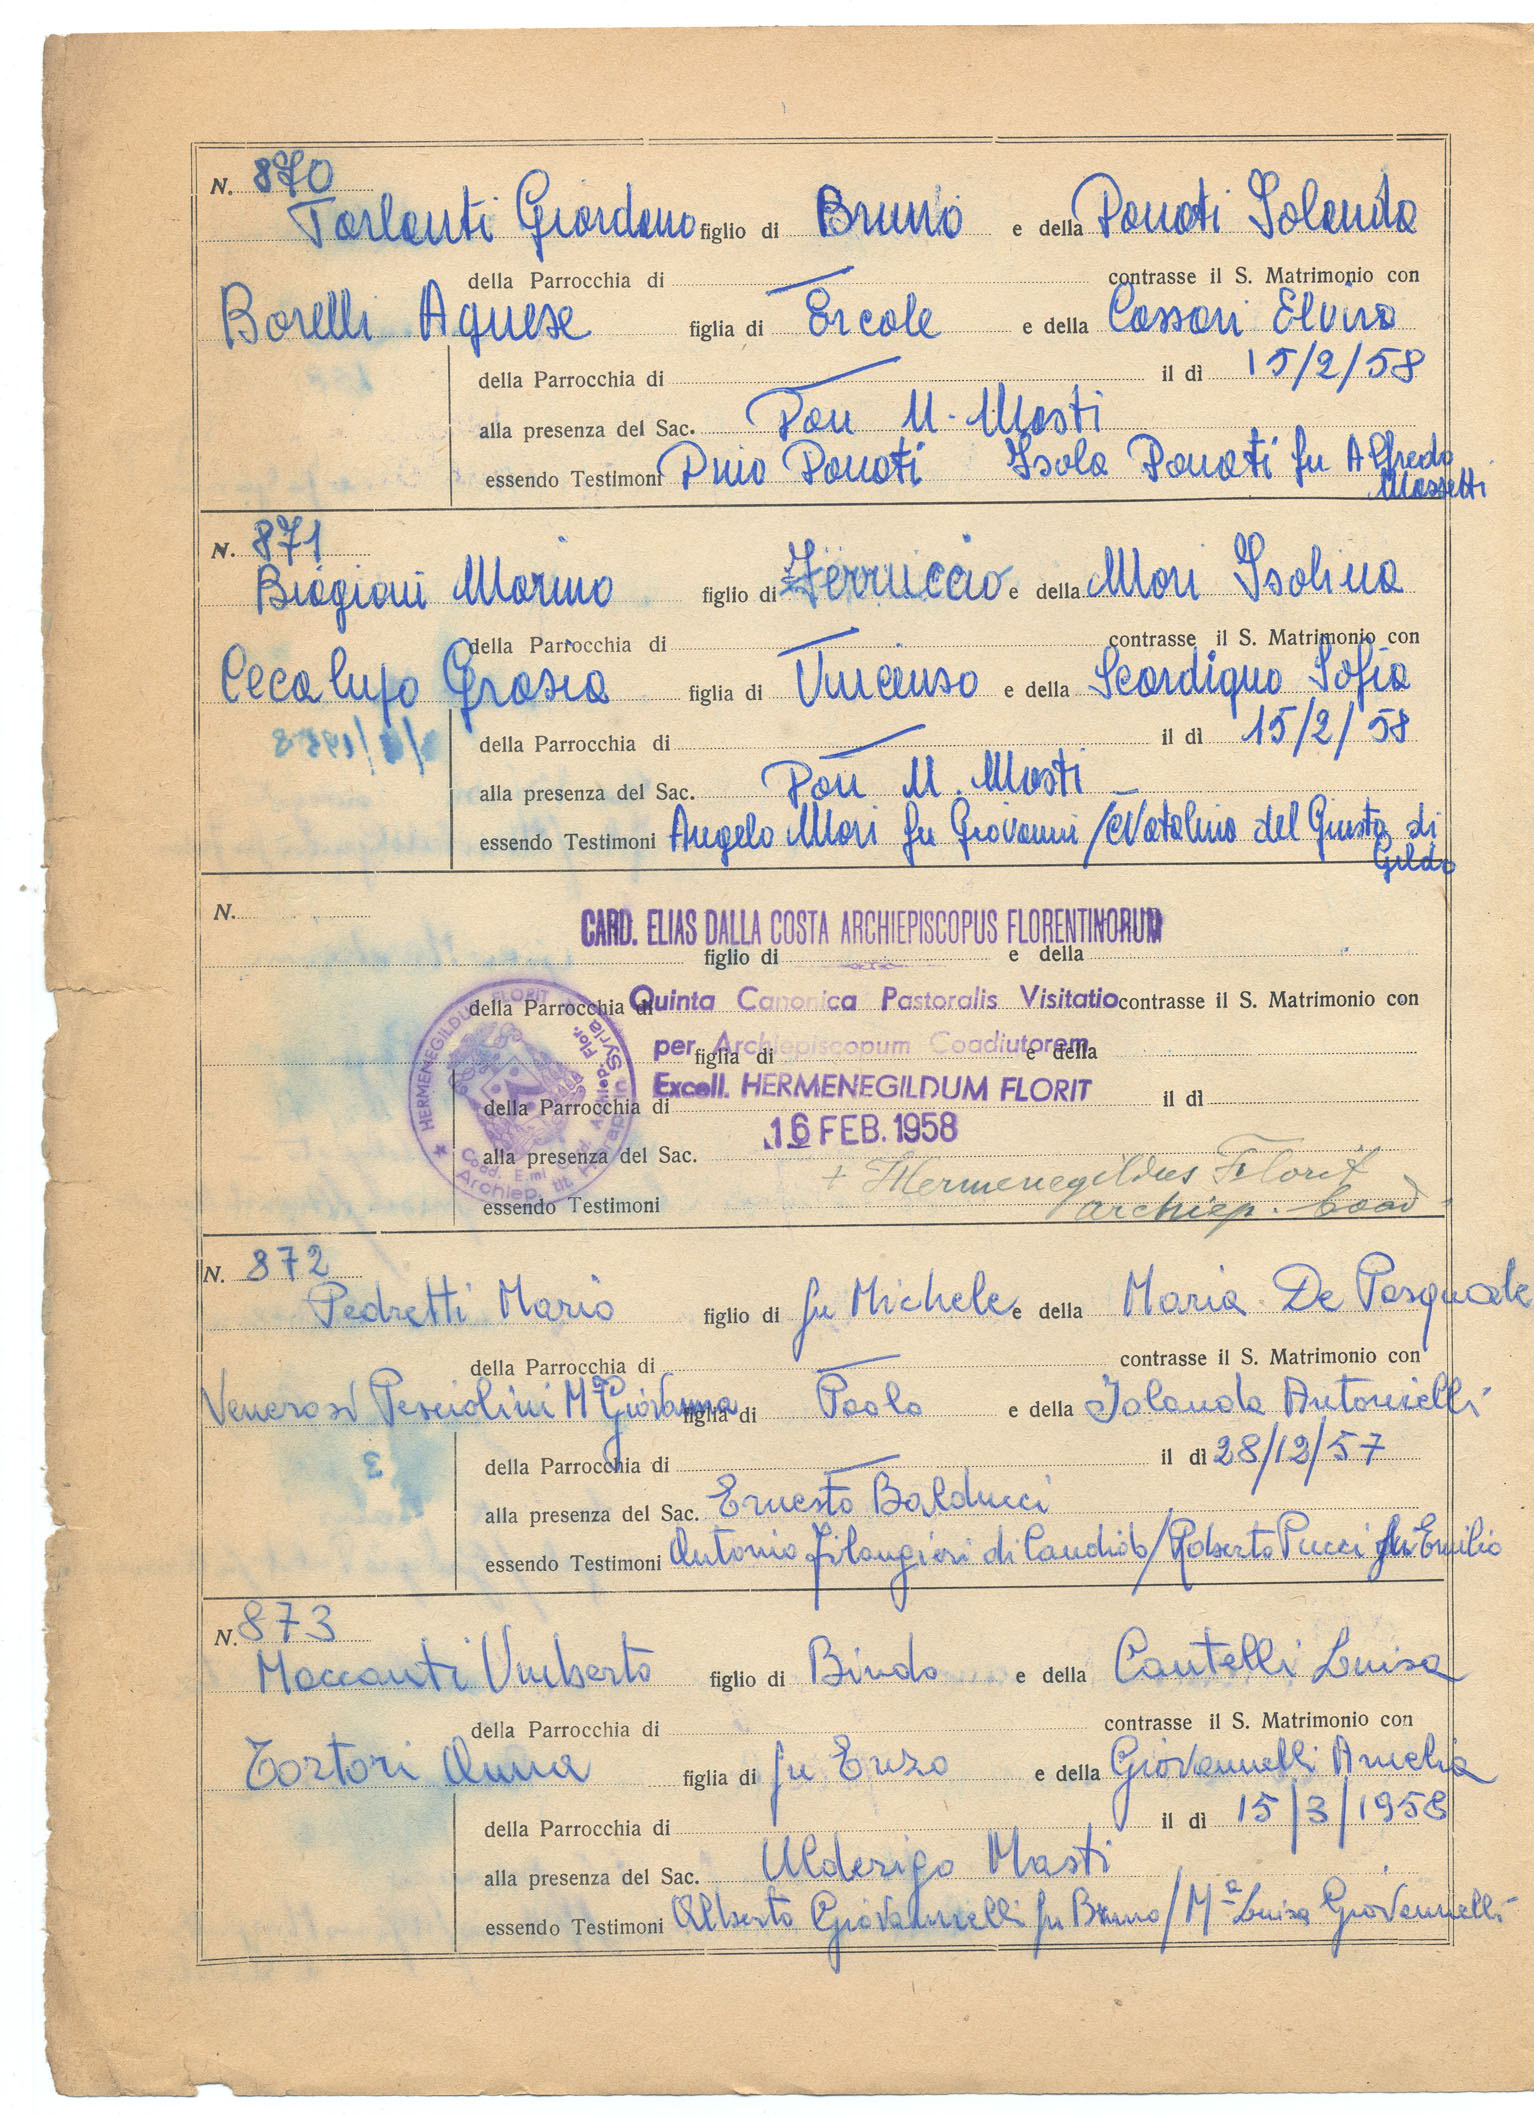 N. 870
Tarlanti Giordano figlio di Bruno e della Donati Iolanda
della Parrocchia di contrasse il S. Matrimonio con
Borelli Agnese figlia di Ercole e della Cassari Elvira
della Parrocchia di il dì 15/2/58
alla presenza del Sac. Don M. Masti
essendo Testimoni Donati Isola Donati fu Alfredo
Massetti
N. 871
Biagioni Marino figlio di Ferruccio e della Mori Isolina
della Parrocchia di contrasse il S. Matrimonio con
Cecalupo Grazia figlia di Vincenso e della Scardigno Sofia
della Parrocchia di il dì 15/2/58
alla presenza del Sac. Don M. Masti
essendo Testimoni Angelo Mori fu Giovanni / Natalino del Giusto di
Gildo
N.
CARD. ELIAS DALLA COSTA ARCHIEPISCOPUS FLORENTINORUM
figlio di e della
della Parrocchia di Quinta Canonica Pastoralis Visitatio contrasse il S. Matrimonio con
per Archiepiscopum Coadiutorem
figlia di e della
Excell. HERMENEGILDUM FLORIT
della Parrocchia di il dì
16 FEB. 1958
alla presenza del Sac.
+ Hermenegildus Florit
essendo Testimoni archiep. Coad.
HERMENEGILDUS FLORIT
Coad. E.mi Archiep. Flor.
Archiep. tit. Hierap. in Syria
N. 872
Pedretti Mario figlio di fu Michele e della Maria De Pasquale
della Parrocchia di contrasse il S. Matrimonio con
Venerosi Pesciolini Mª Giovanna figlia di Paolo e della Iolanda Antonielli
della Parrocchia di il dì 28/12/57
alla presenza del Sac. Ernesto Balducci
essendo Testimoni Antonio Filangieri di Candido / Roberto Pucci fu Emilio
N. 873
Maccanti Umberto figlio di Bindo e della Cantelli Luisa
della Parrocchia di contrasse il S. Matrimonio con
Tortori Anna figlia di fu Enzo e della Giovannelli Amelia
della Parrocchia di il dì 15/3/1958
alla presenza del Sac. Ulderigo Masti
essendo Testimoni Alberto Giovannelli fu Bruno / Mª Luisa Giovannelli